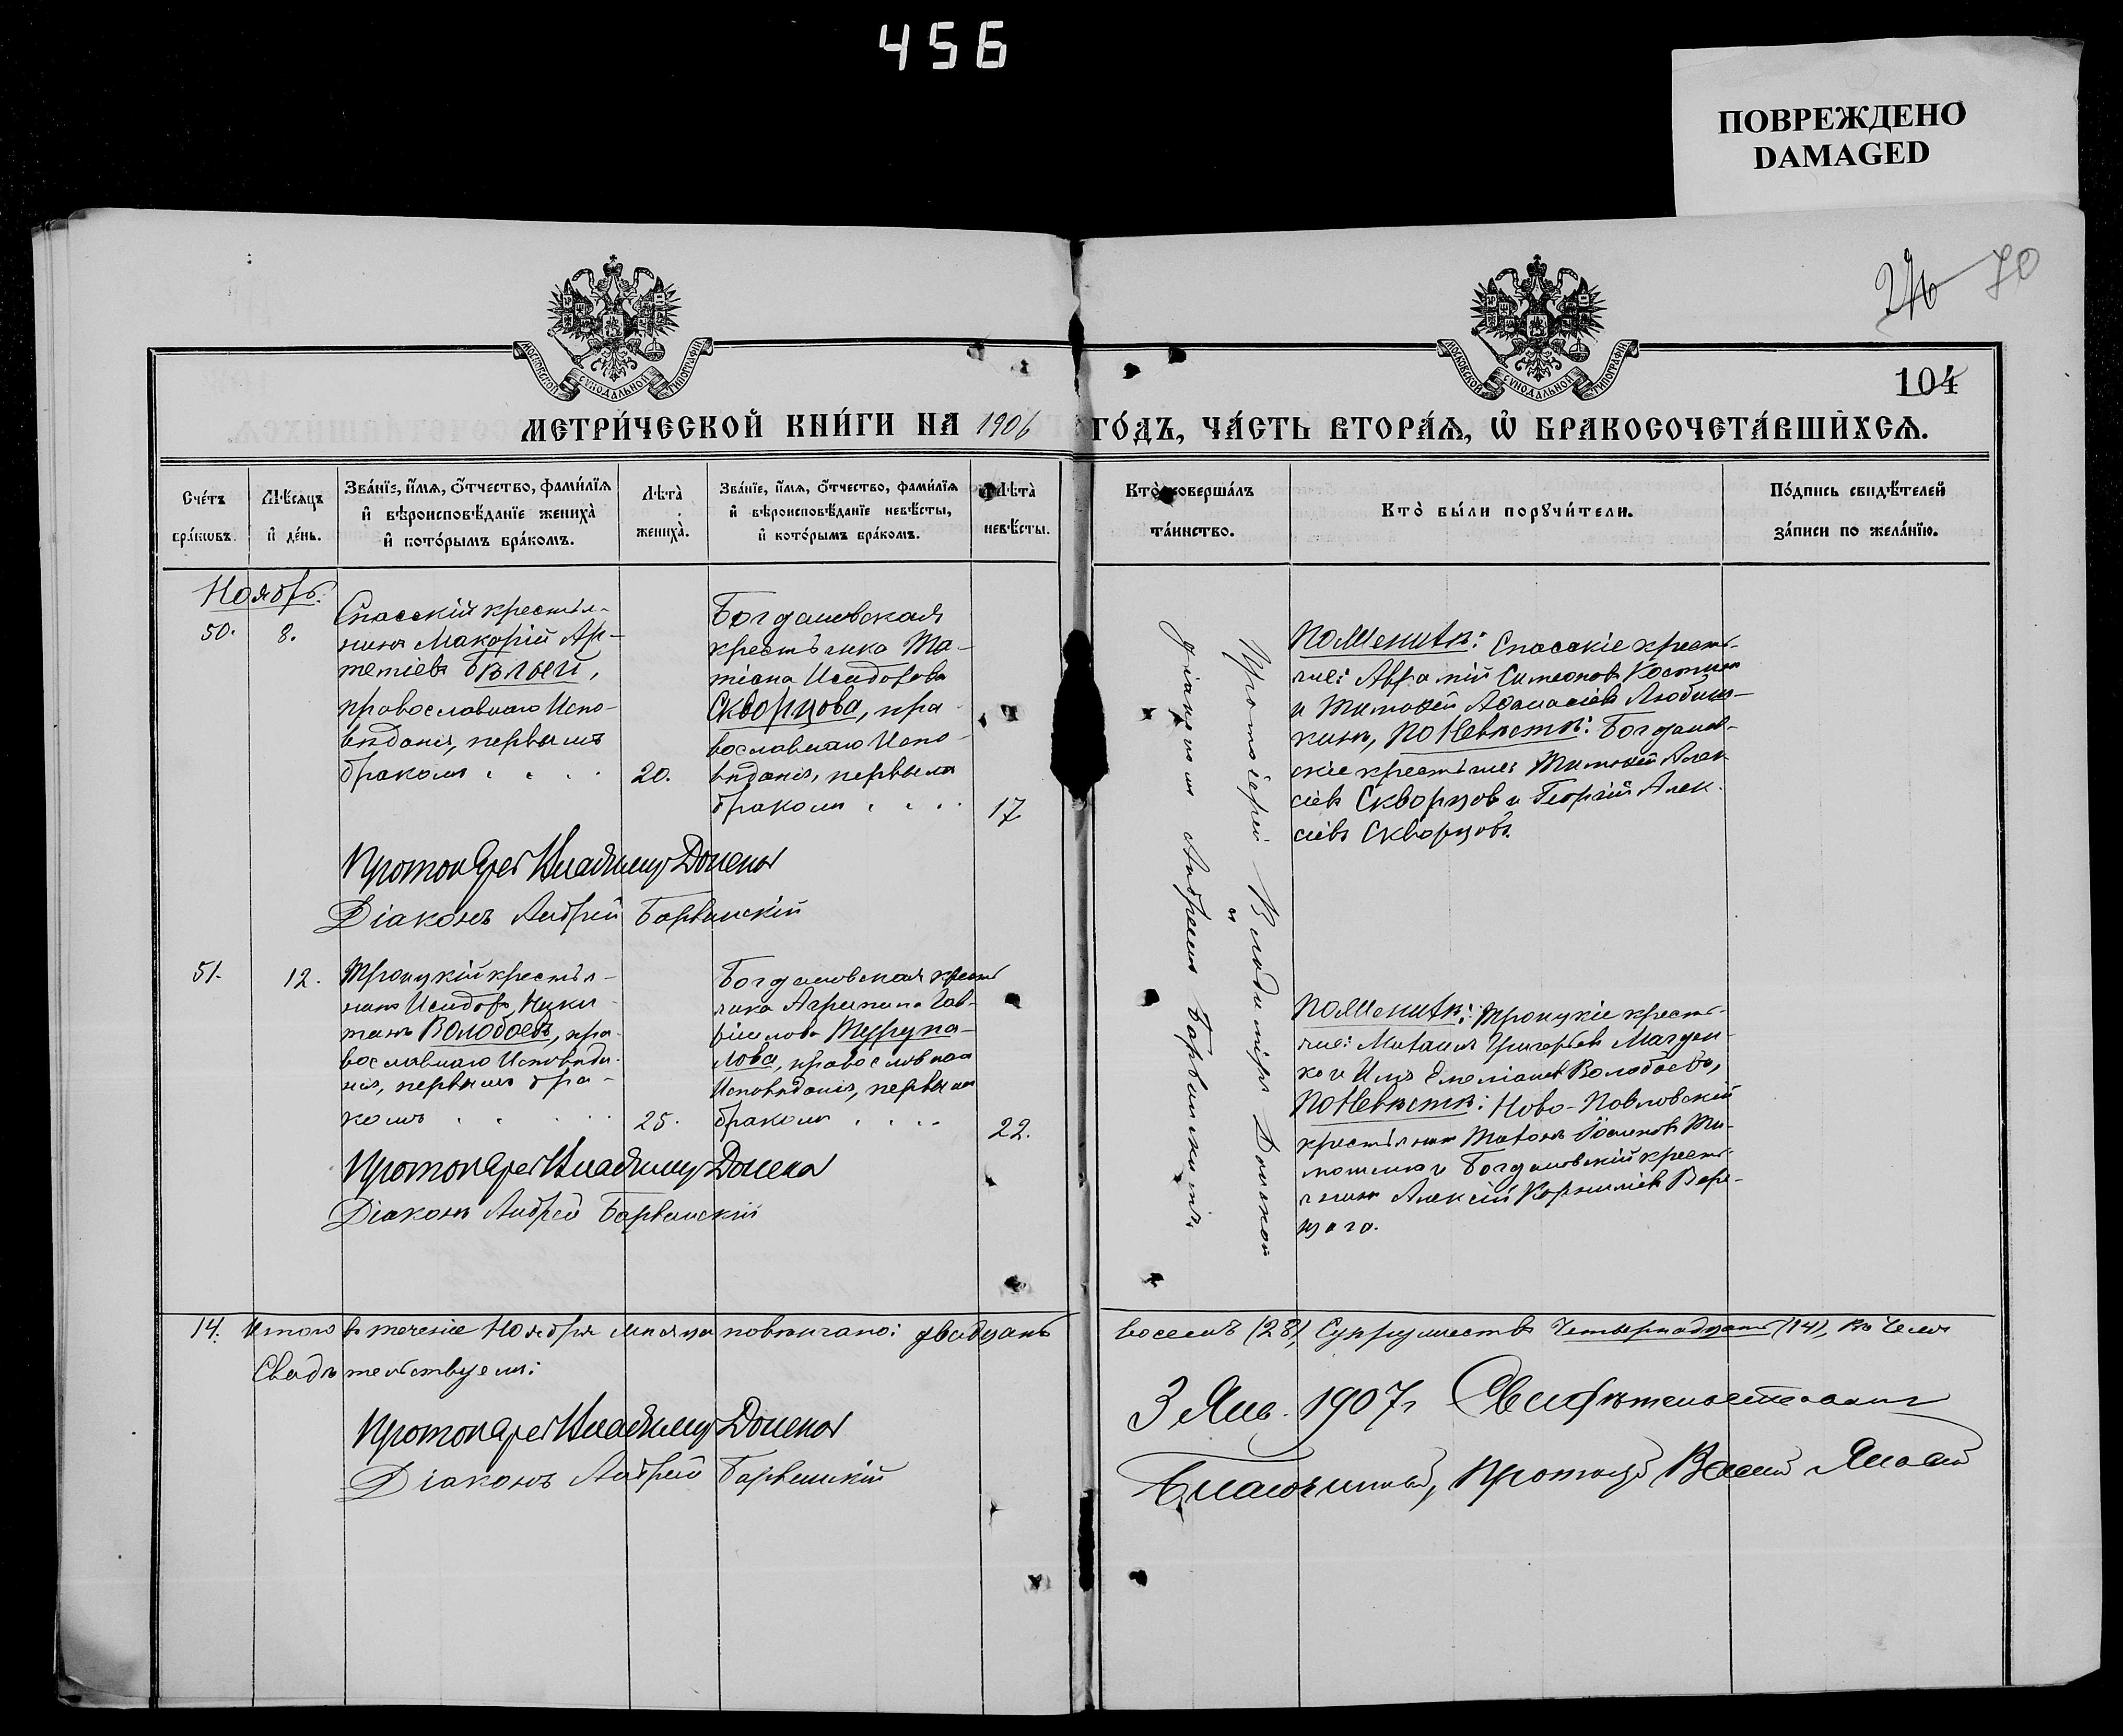 456
ПОВРЕЖДЕНО
DAMAGED
70
104
МОСКОВСКОЙ СУНОДАЛЬНОЙ ТИПОГРАФІИ
МОСКОВСКОЙ СУНОДАЛЬНОЙ ТИПОГРАФІИ
МЕТРИ́ЧЕСКОЙ КНИ́ГИ НА 1906 ГО́ДЪ, ЧА́СТЬ ВТОРА́Ѧ, Ѡ҆ БРАКОСОЧЕТА́ВШИХСѦ.
Сче́тъ
бра́кωвъ.
Мѣ́сѧцъ
и҆ де́нь.
Зва́нїе, и҆́мѧ, ѻ҆́тчество, фами́лїѧ
и҆ вѣроисповѣ́данїе жениха̀
и҆ кото́рымъ бра́комъ.
Лѣта̀
жениха̀.
Зва́нїе, и҆́мѧ, ѻ҆́тчество, фами́лїѧ
и҆ вѣроисповѣ́данїе невѣ́сты,
и҆ кото́рымъ бра́комъ.
Лѣта̀
невѣ́сты.
Кто̀ соверша́лъ
та́инство.
Кто̀ бы́ли порꙋчи́тели.
По́дпись свидѣ́телей
за́писи по жела́нїю.
Ноябрь.
50. 8.
Спасскій крестья-
нинъ Макарій Ар-
темiевъ Бѣлый,
православнаго Испо-
вѣданія, первымъ
бракомъ . . . .
20.
Богдановская
крестьянка Та-
тіана Исидорова
Скворцова, пра-
вославнаго Испо-
вѣданія, первымъ
бракомъ . . . .
17.
Протоіерей Владиміръ Донской
и
діакономъ Андреемъ Барвинскимъ
По Женихѣ: Спасскіе крестья-
не: Симеоновъ Костинъ
и Тимофей Аѳанасіевъ Любиш-
кинъ, По Невѣстѣ: Богданов-
скіе крестьяне: Тимофей Алек-
сіевъ Скворцовъ и Георгій Алек-
сіевъ Скворцовъ.
Протоіерей Владиміръ Донской
Діаконъ Андрей Барвинскій
51. 12.
Троицкій крестья-
нинъ Исидоръ Ники-
тинъ Волобоевъ, пра-
вославнаго Исповѣда-
нія, первымъ бра-
комъ . . . .
25.
Богдановская кресть-
янка Агрипина Гав-
ріилова Турупа-
лова, православнаго
Исповѣданія, первымъ
бракомъ . . . .
22.
По Женихѣ: Троицкіе кресть-
яне: Михаилъ Григорьевъ
и Илія Емеліановъ Волобоевъ,
По Невѣстѣ: Ново-Павловскій
крестьянинъ Ти-
и Богдановскій кресть-
янинъ Алексій Корниліевъ
Протоіерей Владиміръ Донской
Діаконъ Андрей Барвинскій
14. Итого въ теченіе Ноября мѣсяца повѣнчано: двадцать восемь (28) Супружествъ Четырнадцать (14), въ чемъ
Свидѣтельствуемъ:
Протоіерей Владиміръ Донской
Діаконъ Андрей Барвинскій
3 Янв. 1907 г. Свидѣтельствовалъ
Благочинный, Протоіерей